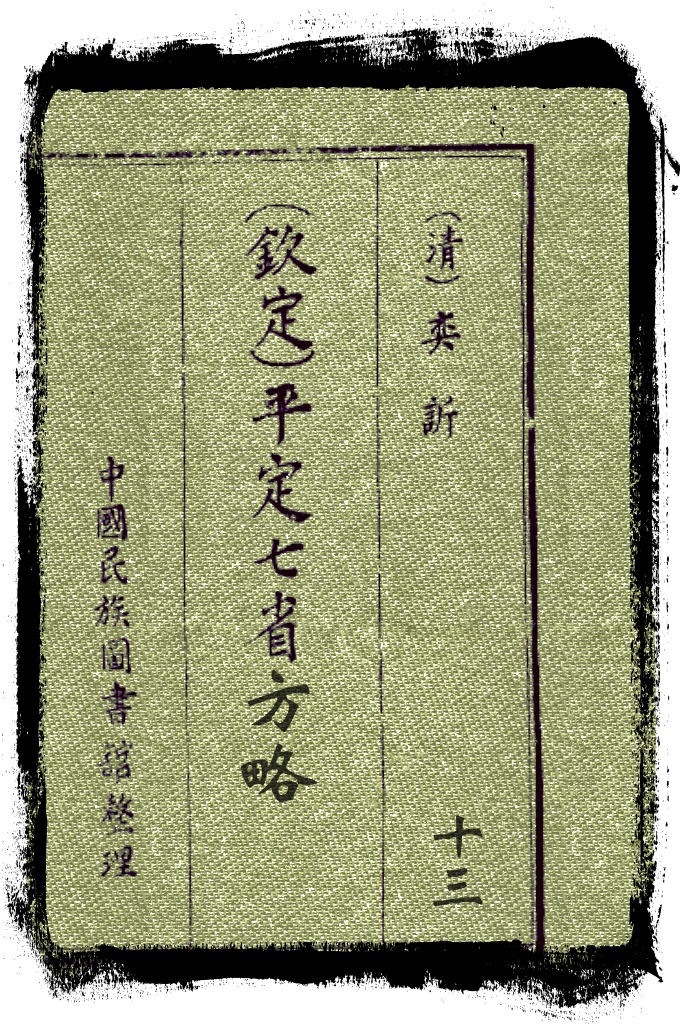 (清)奕訢
十三
(欽定)平定七省方略
中國民族圖書舘整理